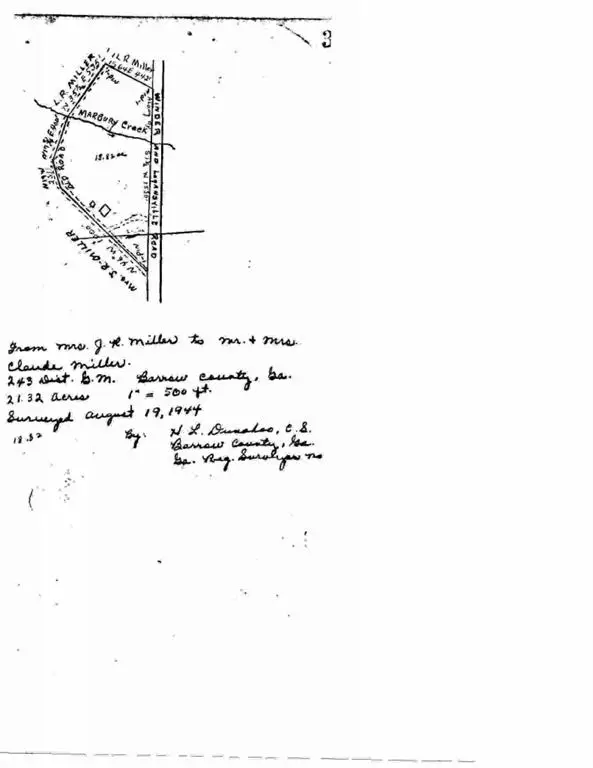 3
L.R. Miller
L.R. MILLER
MARBURY Creek
WINDER AND LOGANSVILLE ROAD
OLD ROAD
18.82 ac
MRS J.R. MILLER
From Mrs. J. R. Miller to Mr. + Mrs.
Claude Miller.
243 Dist. G.M. Barrow County, Ga.
21.32 Acres 1" = 500 ft.
Surveyed August 19, 1944
18.82 By: H L. Dunahoo, C.S.
Barrow County, Ga.
Ga. Reg. Surveyor no